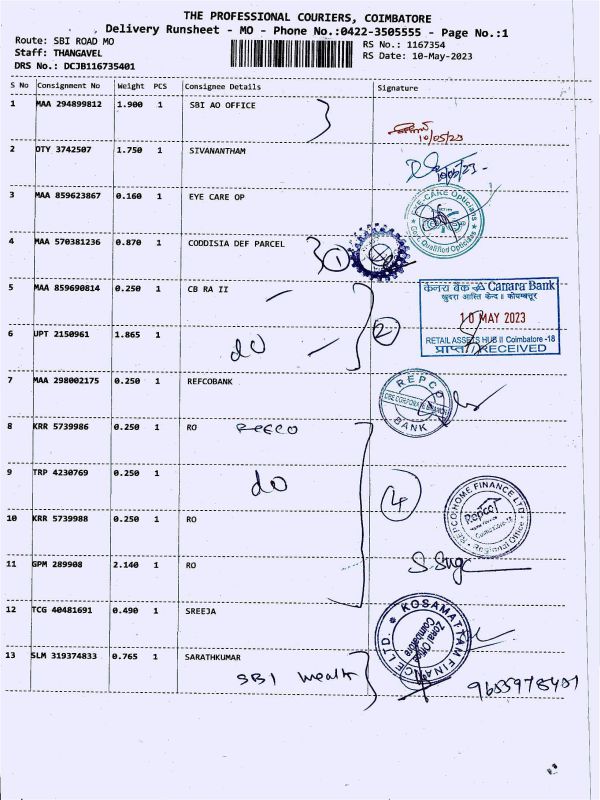 THE PROFESSIONAL COURIERS, COIMBATORE
Delivery Runsheet - MO - Phone No.:0422-3505555 - Page No.:1
Route: SBI ROAD MO
RS No.: 1167354
Staff: THANGAVEL
RS Date: 10-May-2023
DRS No.: DCJB116735401
S No Consignment No Weight PCS Consignee Details Signature
1 MAA 294899812 1.900 1 SBI AO OFFICE
10/05/23
2 DTY 3742507 1.750 1 SIVANANTHAM
10/05/23
3 MAA 859623867 0.160 1 EYE CARE OP
EYE-CARE Opticians
Govt. Qualified Opticians
4 MAA 570381236 0.870 1 CODDISIA DEF PARCEL
1
5 MAA 859690814 0.250 1 CB RA II
केनरा बैंक Canara Bank
10 MAY 2023
RETAIL ASSETS HUB II Coimbatore -18
प्राप्त / RECEIVED
2
6 UPT 2150961 1.865 1
do
7 MAA 298002175 0.250 1 REFCOBANK
REPCO BANK
CBE CORPORATE BRANCH
8 KRR 5739986 0.250 1 RO REPCO
9 TRP 4230769 0.250 1
do
4
10 KRR 5739988 0.250 1 RO
REPCO HOME FINANCE LTD.
Regional Office
11 GPM 289908 2.140 1 RO
12 TCG 40481691 0.490 1 SREEJA
KOSAMATTAM FINANCE LTD.
Zonal Office
Coimbatore
13 SLM 319374833 0.765 1 SARATHKUMAR
SBI Wealth